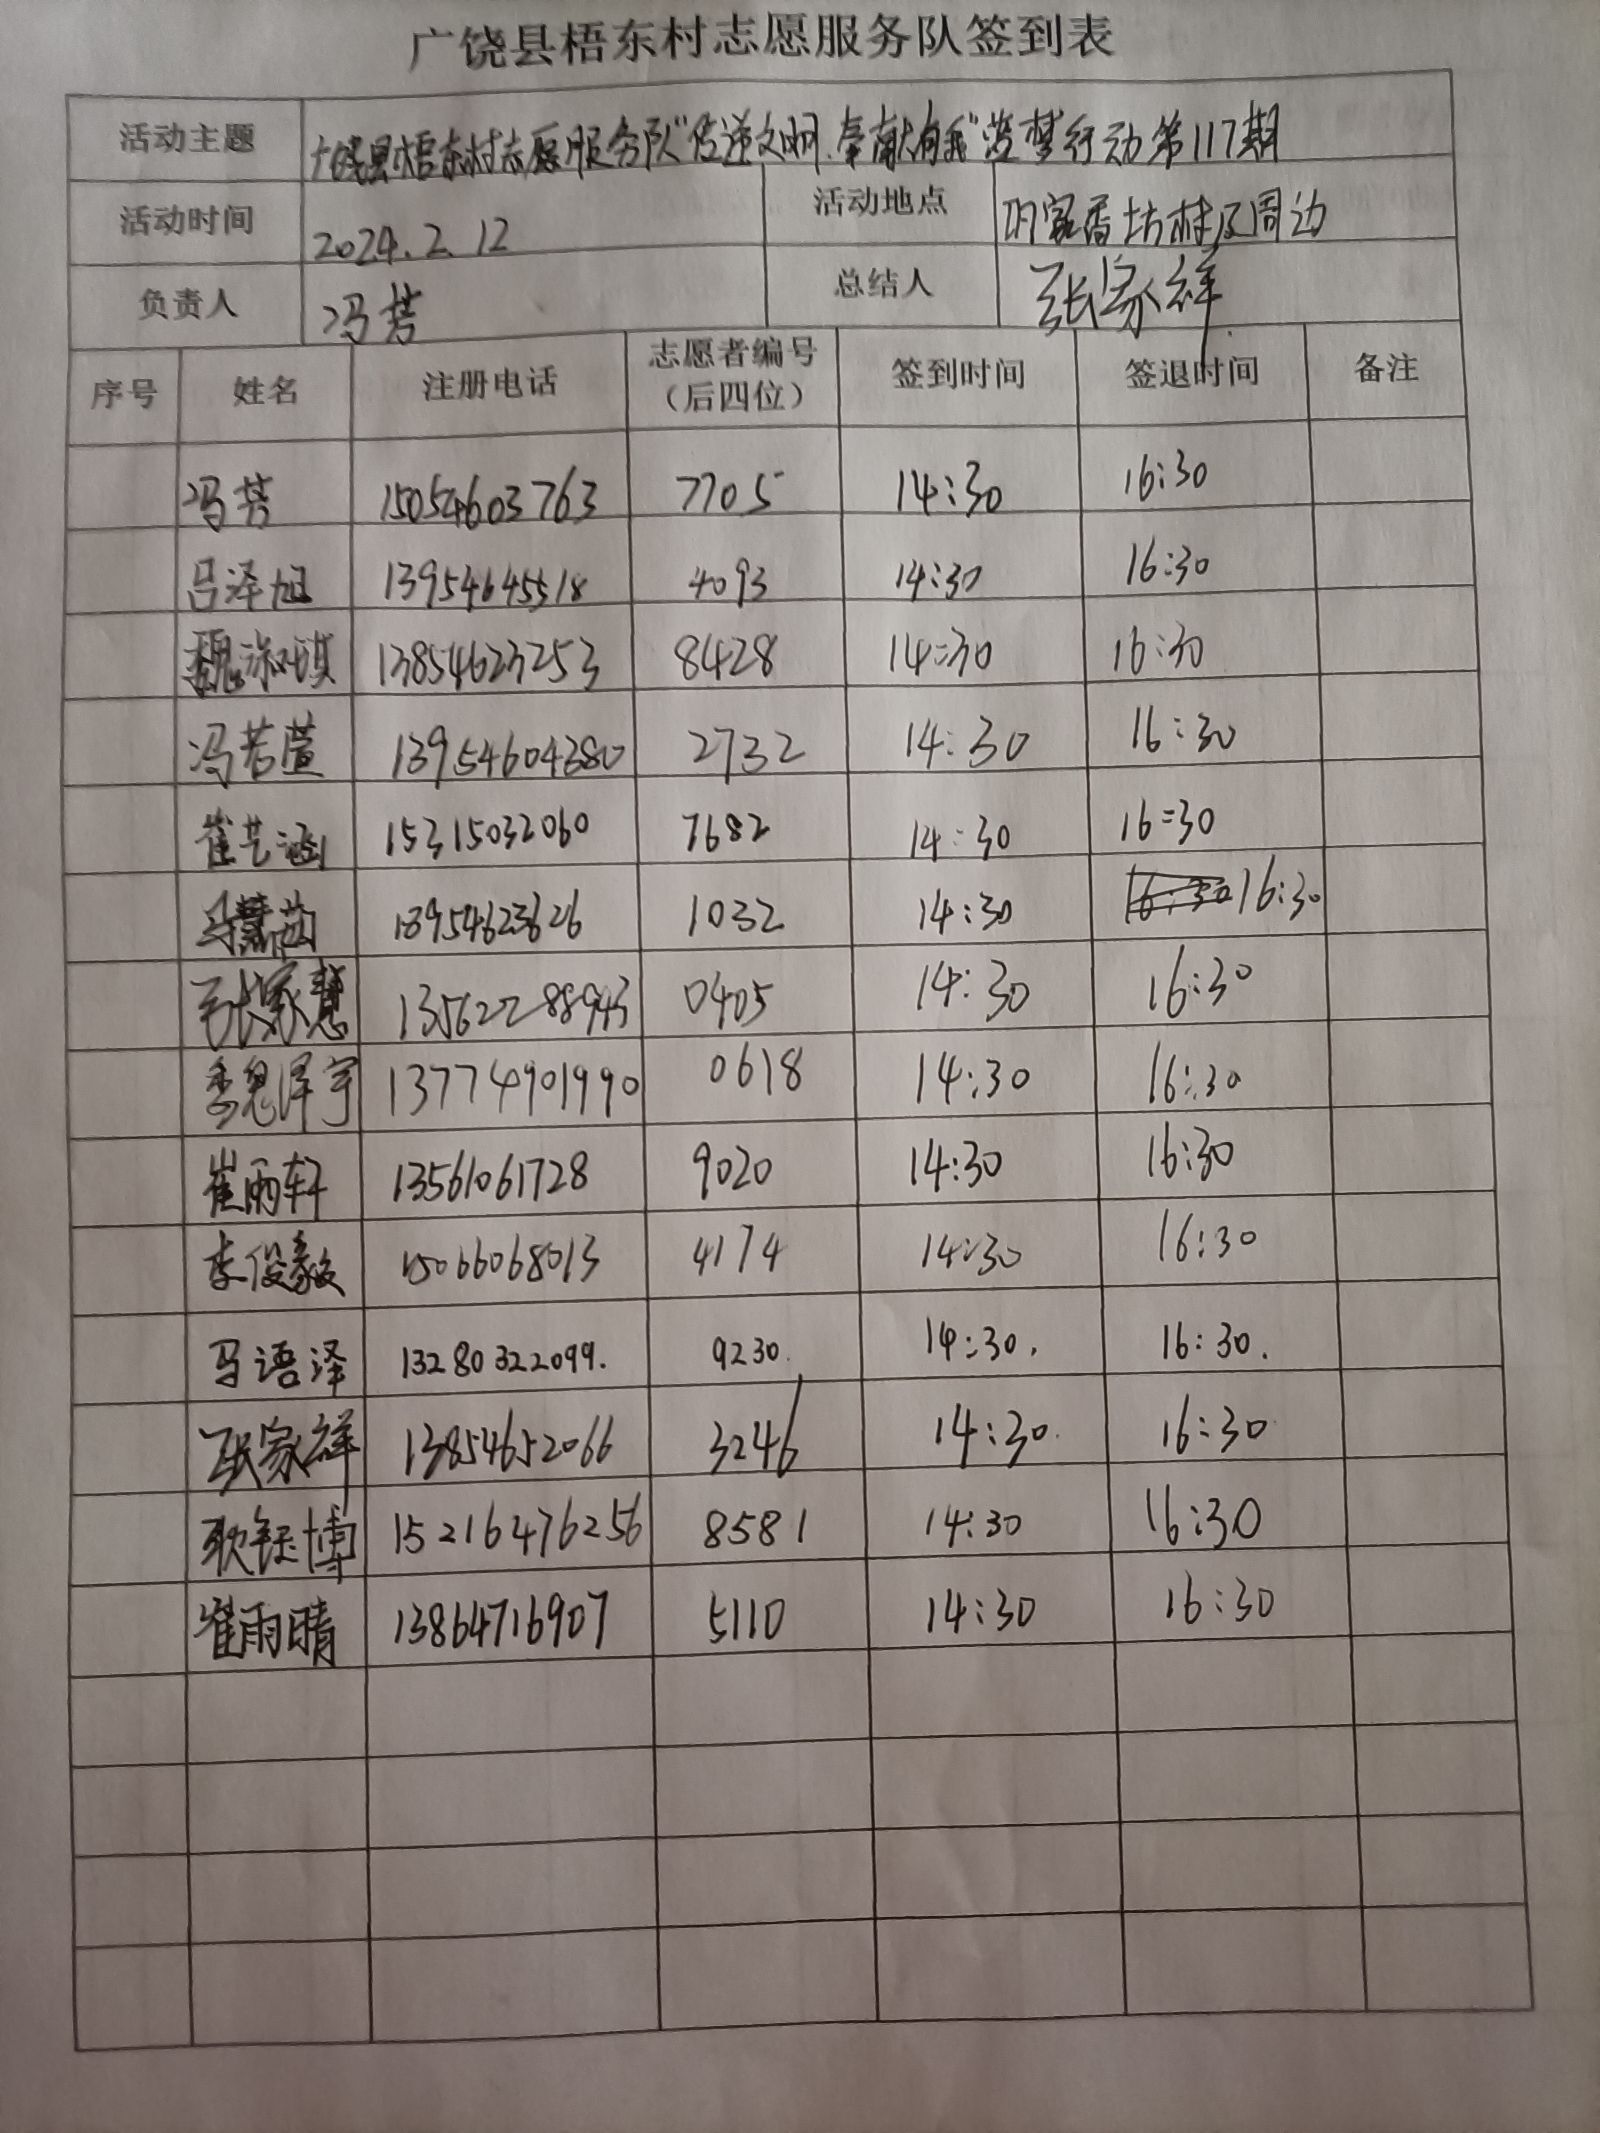 广饶县梧东村志愿服务队签到表
活动主题 广饶县梧东村志愿服务队“传递文明.奉献有我”蓝梦行动第117期
活动时间 2024.2.12 活动地点 巩家香坊村及周边
负责人 冯芳 总结人 张家祥
序号 姓名 注册电话 志愿者编号（后四位） 签到时间 签退时间 备注
冯芳 15054603763 7705 14:30 16:30
吕泽旭 13954645518 4093 14:30 16:30
魏淑琪 13854623253 8428 14:30 16:30
冯若萱 13954604380 2732 14:30 16:30
崔艺涵 15315032060 7682 14:30 16:30
13954623626 1032 14:30 16:30
张家慧 13562288943 0405 14:30 16:30
魏泽宇 13774901990 0618 14:30 16:30
崔雨轩 13561061728 9020 14:30 16:30
李俊毅 15066068013 4174 14:30 16:30
马语泽 13280322099. 9230. 14:30. 16:30.
张家祥 13854652066 3246 14:30. 16:30
耿钰博 15216476256 8581 14:30 16:30
崔雨晴 13864716907 5110 14:30 16:30